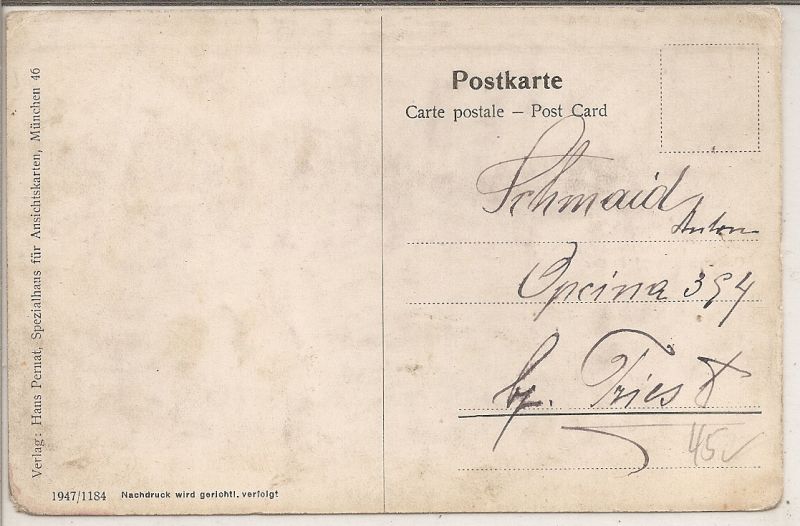 Verlag: Hans Pernat, Spezialhaus für Ansichtskarten, München 46
Postkarte
Carte postale — Post Card
Schmaid
Anton
Opcina 394
by. Triest
45
1947/1184 Nachdruck wird gerichtl. verfolgt